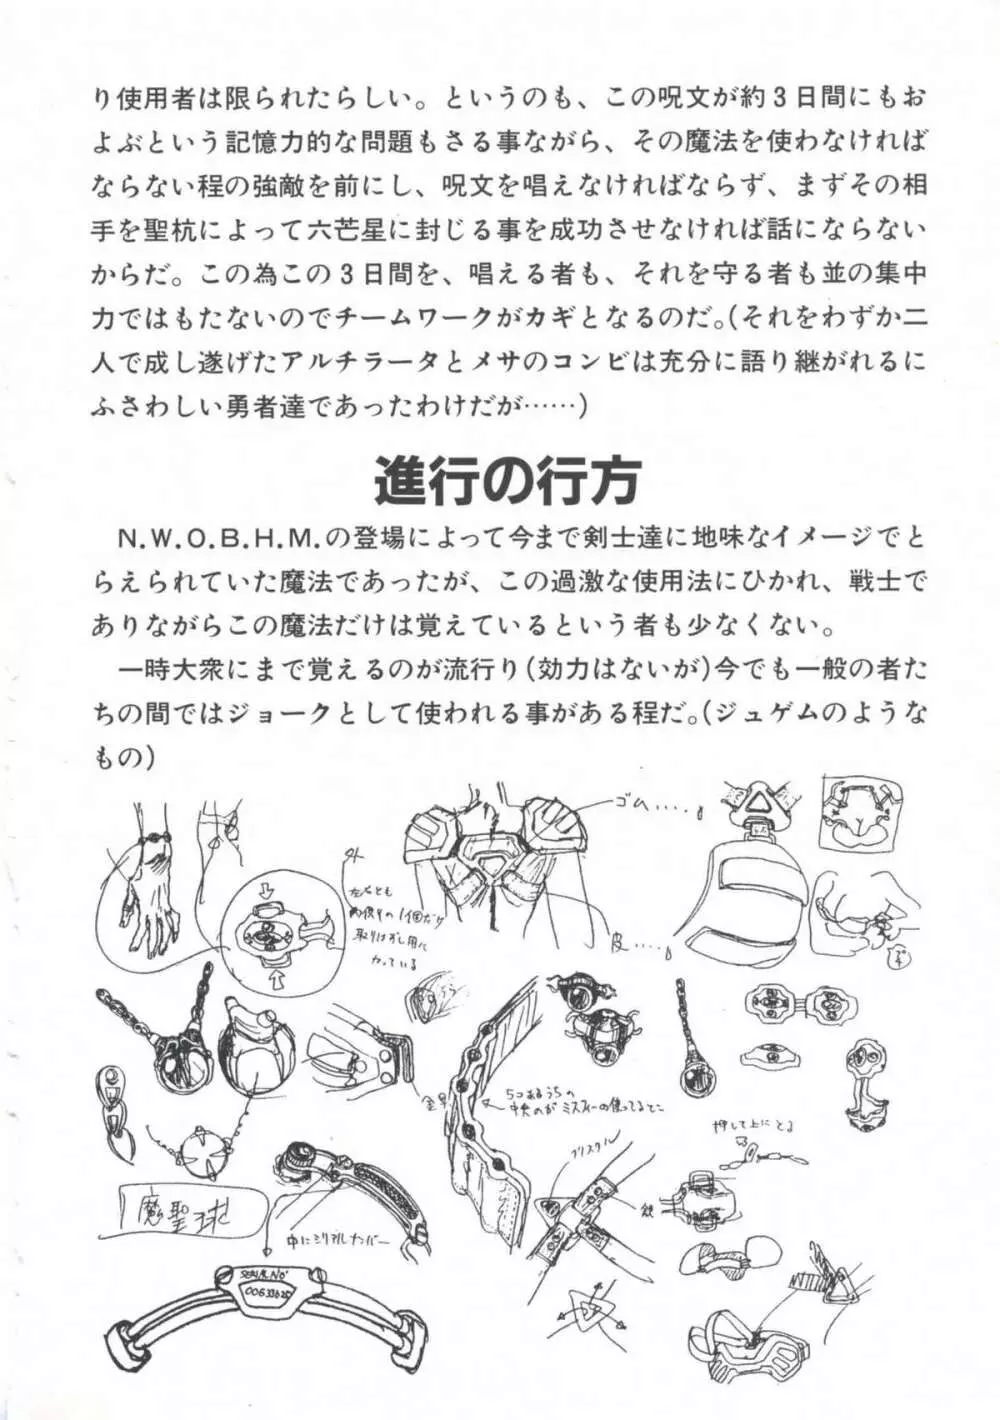 り使用者は限られたらしい。というのも、この呪文が約3日間にもお
よぶという記憶力的な問題もさる事ながら、その魔法を使わなければ
ならない程の強敵を前にし、呪文を唱えなければならず、まずその相
手を聖杭によって六芒星に封じる事を成功させなければ話にならない
からだ。この為この3日間を、唱える者も、それを守る者も並の集中
力ではもたないのでチームワークがカギとなるのだ。(それをわずか二
人で成し遂げたアルチラータとメサのコンビは充分に語り継がれるに
ふさわしい勇者達であったわけだが……)
進行の行方
N.W.O.B.H.M.の登場によって今まで剣士達に地味なイメージでと
らえられていた魔法であったが、この過激な使用法にひかれ、戦士で
ありながらこの魔法だけは覚えているという者も少なくない。
一時大衆にまで覚えるのが流行り(効力はないが)今でも一般の者た
ちの間ではジョークとして使われる事がある程だ。(ジュゲムのような
もの)
ゴム
外
左右とも
両側の1個だけ
取りはずし用に
なっている
皮
うら
金具
5つあるうちの
中央のがミスティーの使ってるとこ
押して上にとる
クリスタル
鉄
魔聖球
中にシリアルナンバー
SERIAL No